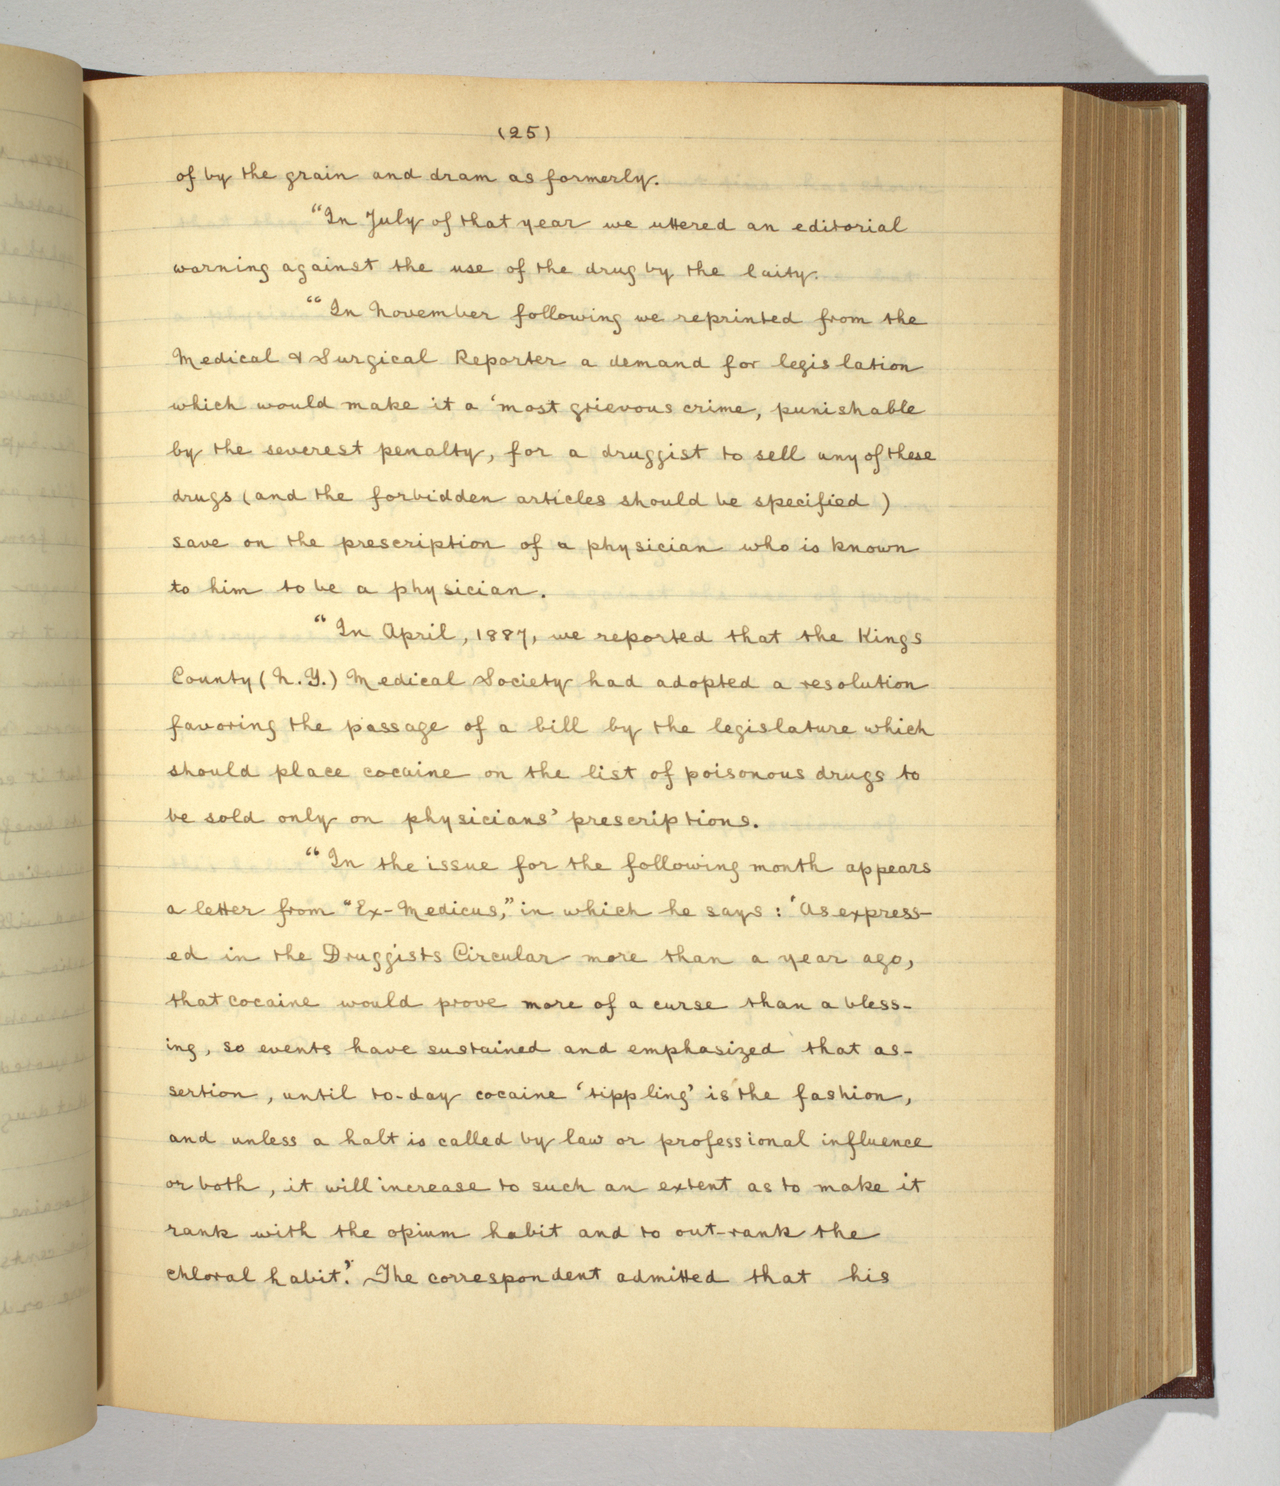 (25)
of by the grain and dram as formerly.
"In July of that year we uttered an editorial
warning against the use of the drug by the laity.
"In November following we reprinted from the
Medical & Surgical Reporter a demand for legislation
which would make it a 'most grievous crime, punishable
by the severest penalty, for a druggist to sell any of these
drugs (and the forbidden articles should be specified)
save on the prescription of a physician who is known
to him to be a physician.
"In April, 1887, we reported that the Kings
County (N.Y.) Medical Society had adopted a resolution
favoring the passage of a bill by the legislature which
should place cocaine on the list of poisonous drugs to
be sold only on physicians' prescriptions.
"In the issue for the following month appears
a letter from "Ex-Medicus," in which he says: 'As express-
ed in the Druggists Circular more than a year ago,
that cocaine would prove more of a curse than a bless-
ing, so events have sustained and emphasized that as-
sertion, until to-day cocaine 'tippling' is the fashion,
and unless a halt is called by law or professional influence
or both, it will increase to such an extent as to make it
rank with the opium habit and to out-rank the
chloral habit.' The correspondent admitted that his